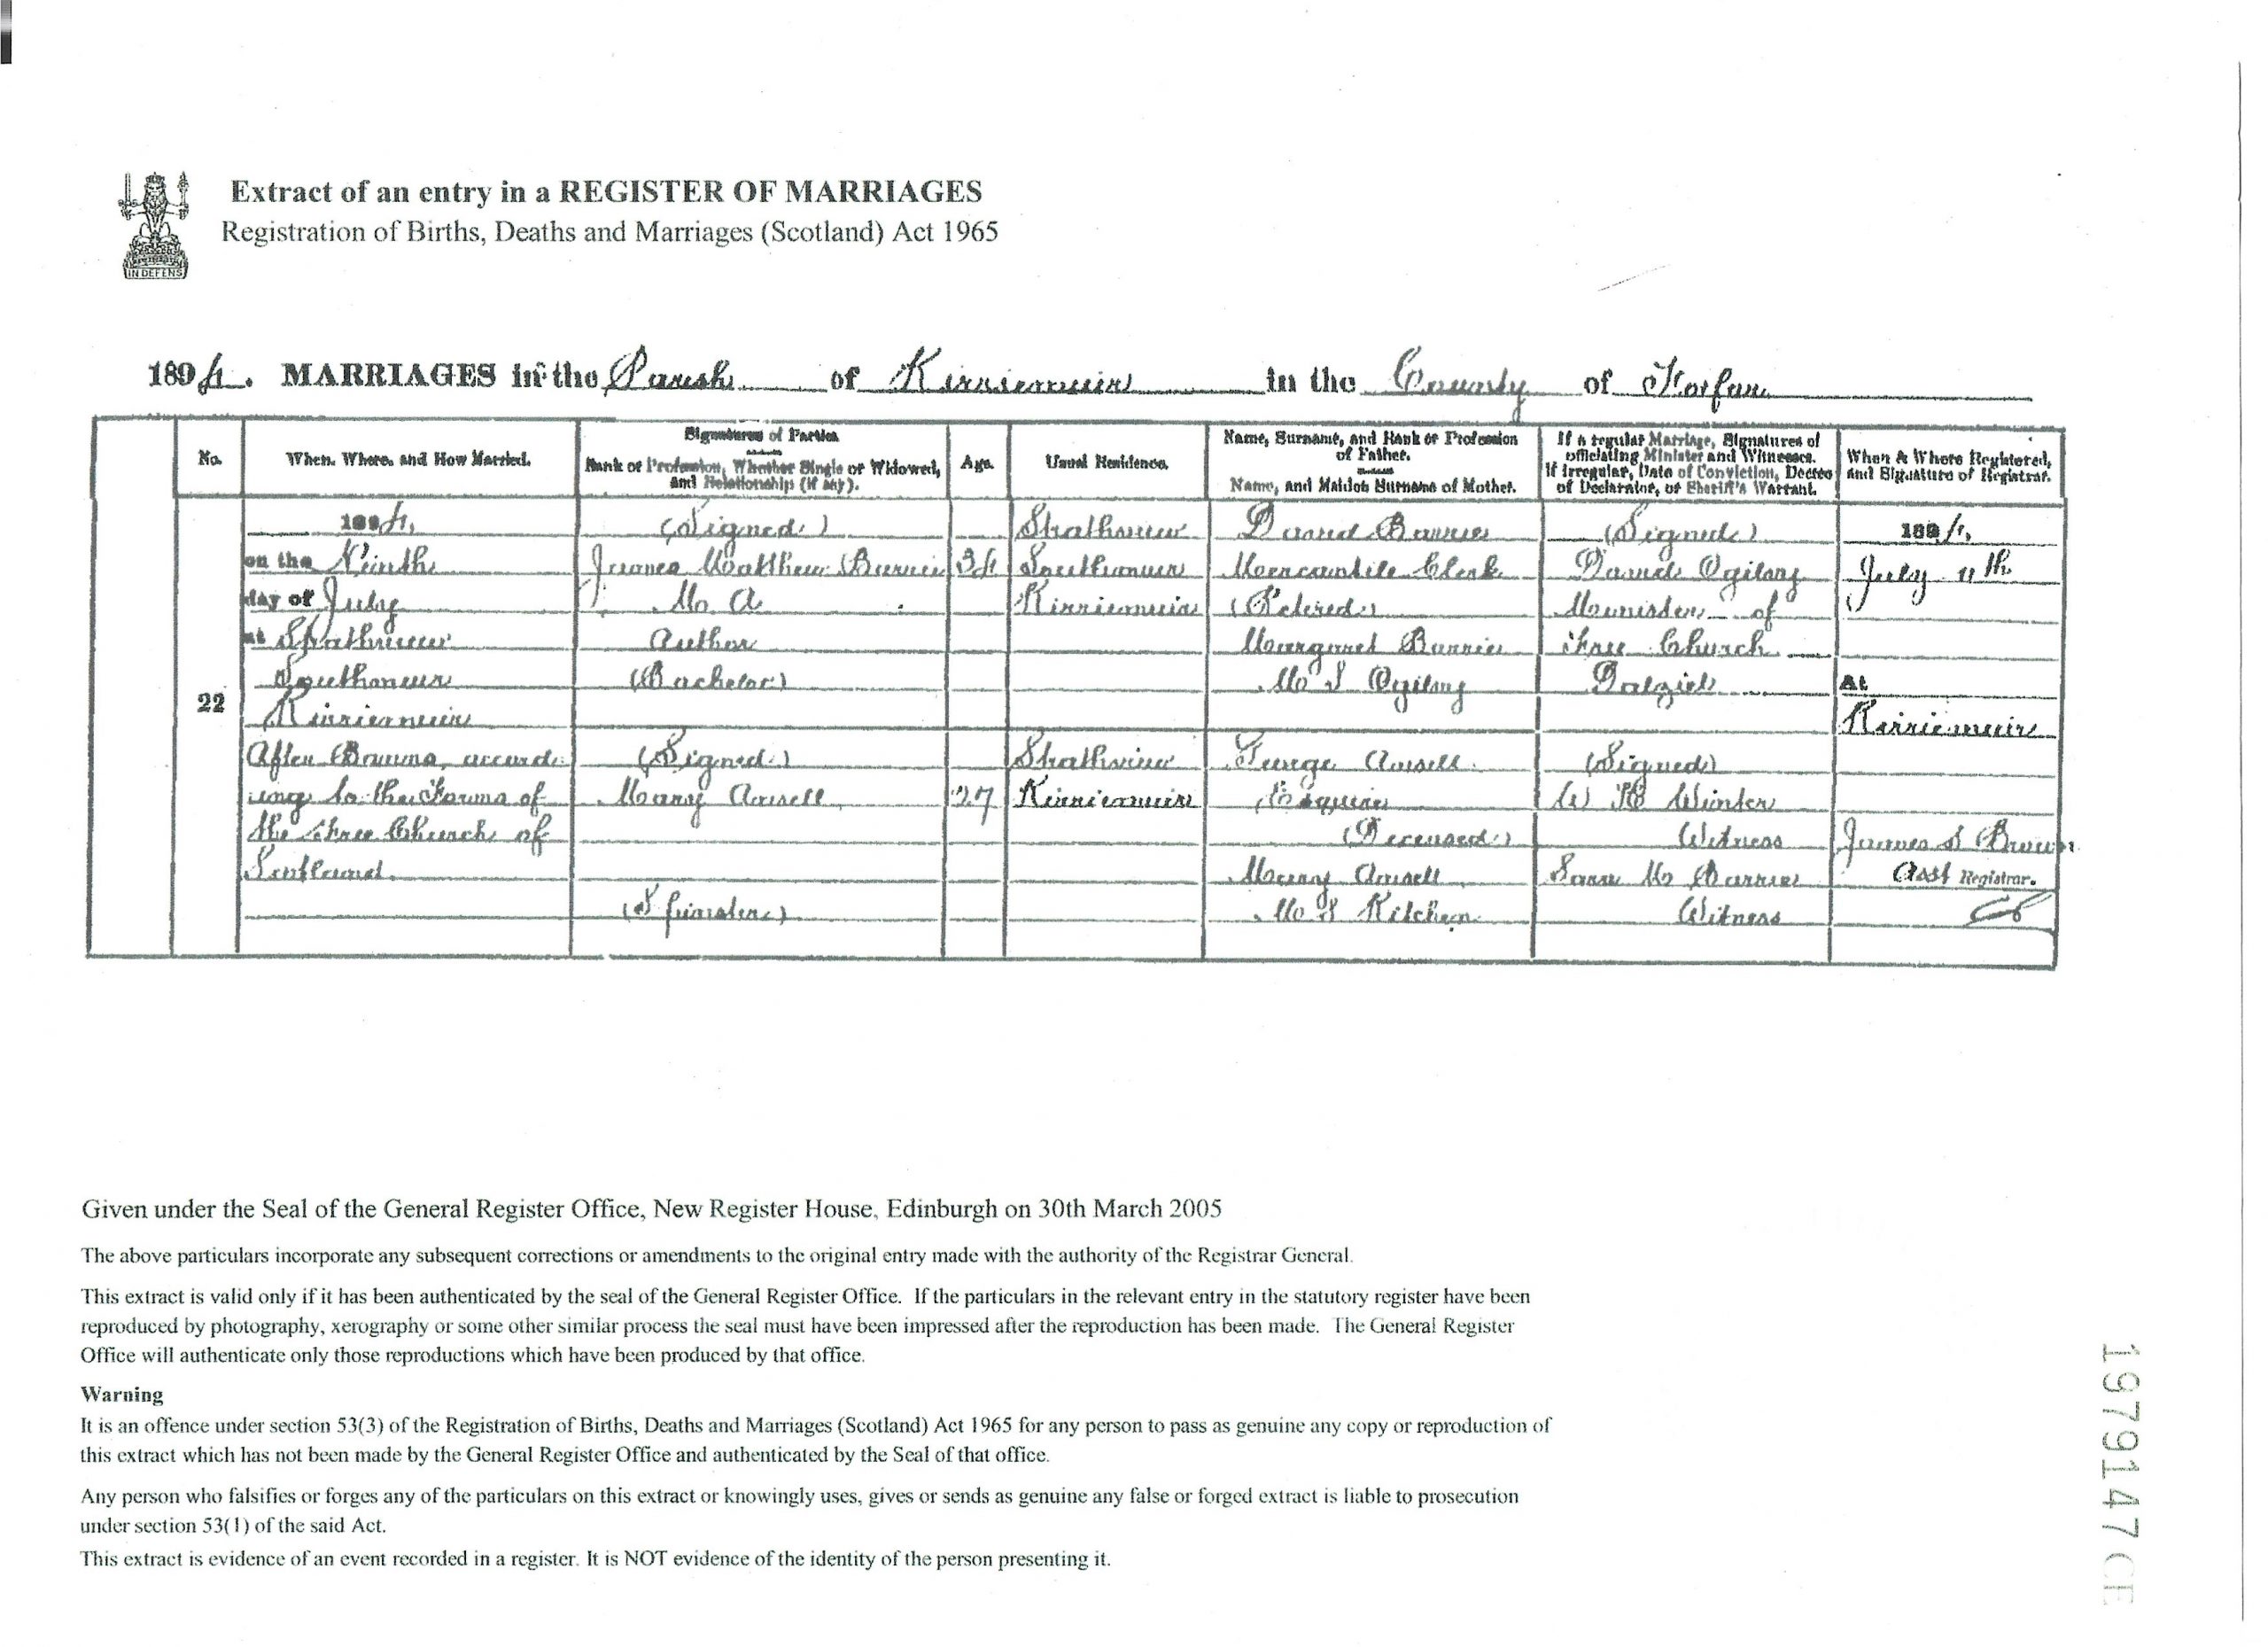 IN DEFENS
Extract of an entry in a REGISTER OF MARRIAGES
Registration of Births, Deaths and Marriages (Scotland) Act 1965
1894. MARRIAGES in the Parish of Kirriemuir in the County of Forfar
No.
When, Where, and How Married.
Signatures of Parties.
Rank or Profession, Whether Single or Widowed, and Relationship (if any).
Age.
Usual Residence.
Name, Surname, and Rank or Profession of Father.
Name, and Maiden Surname of Mother.
If a regular Marriage, Signatures of officiating Minister and Witnesses.
If irregular, Date of Conviction, Decree of Declarator, or Sheriff's Warrant.
When & Where Registered, and Signature of Registrar.
22
1894,
on the Ninth
day of July
at Strathview
Southmuir
Kirriemuir
After Banns, accord-
ing to the Forms of
the Free Church of
Scotland.
(Signed)
James Matthew Barrie
M. A.
Author
(Bachelor)
(Signed)
Mary Ansell
(Spinster)
34
27
Strathview
Southmuir
Kirriemuir
Strathview
Kirriemuir
David Barrie
Mercantile Clerk
(Retired)
Margaret Barrie
M. S Ogilvy
George Ansell
Esquire
(Deceased)
Mary Ansell
M. S Kitchen
(Signed)
David Ogilvy
Minister of
Free Church
Dalziel
(Signed)
W Winter
Witness
Sara M Barrie
Witness
1894,
July 11th
At
Kirriemuir
James S Brown
Asst Registrar.
Given under the Seal of the General Register Office, New Register House, Edinburgh on 30th March 2005
The above particulars incorporate any subsequent corrections or amendments to the original entry made with the authority of the Registrar General.
This extract is valid only if it has been authenticated by the seal of the General Register Office. If the particulars in the relevant entry in the statutory register have been
reproduced by photography, xerography or some other similar process the seal must have been impressed after the reproduction has been made. The General Register
Office will authenticate only those reproductions which have been produced by that office.
Warning
It is an offence under section 53(3) of the Registration of Births, Deaths and Marriages (Scotland) Act 1965 for any person to pass as genuine any copy or reproduction of
this extract which has not been made by the General Register Office and authenticated by the Seal of that office.
Any person who falsifies or forges any of the particulars on this extract or knowingly uses, gives or sends as genuine any false or forged extract is liable to prosecution
under section 53(1) of the said Act.
This extract is evidence of an event recorded in a register. It is NOT evidence of the identity of the person presenting it.
1979147CE